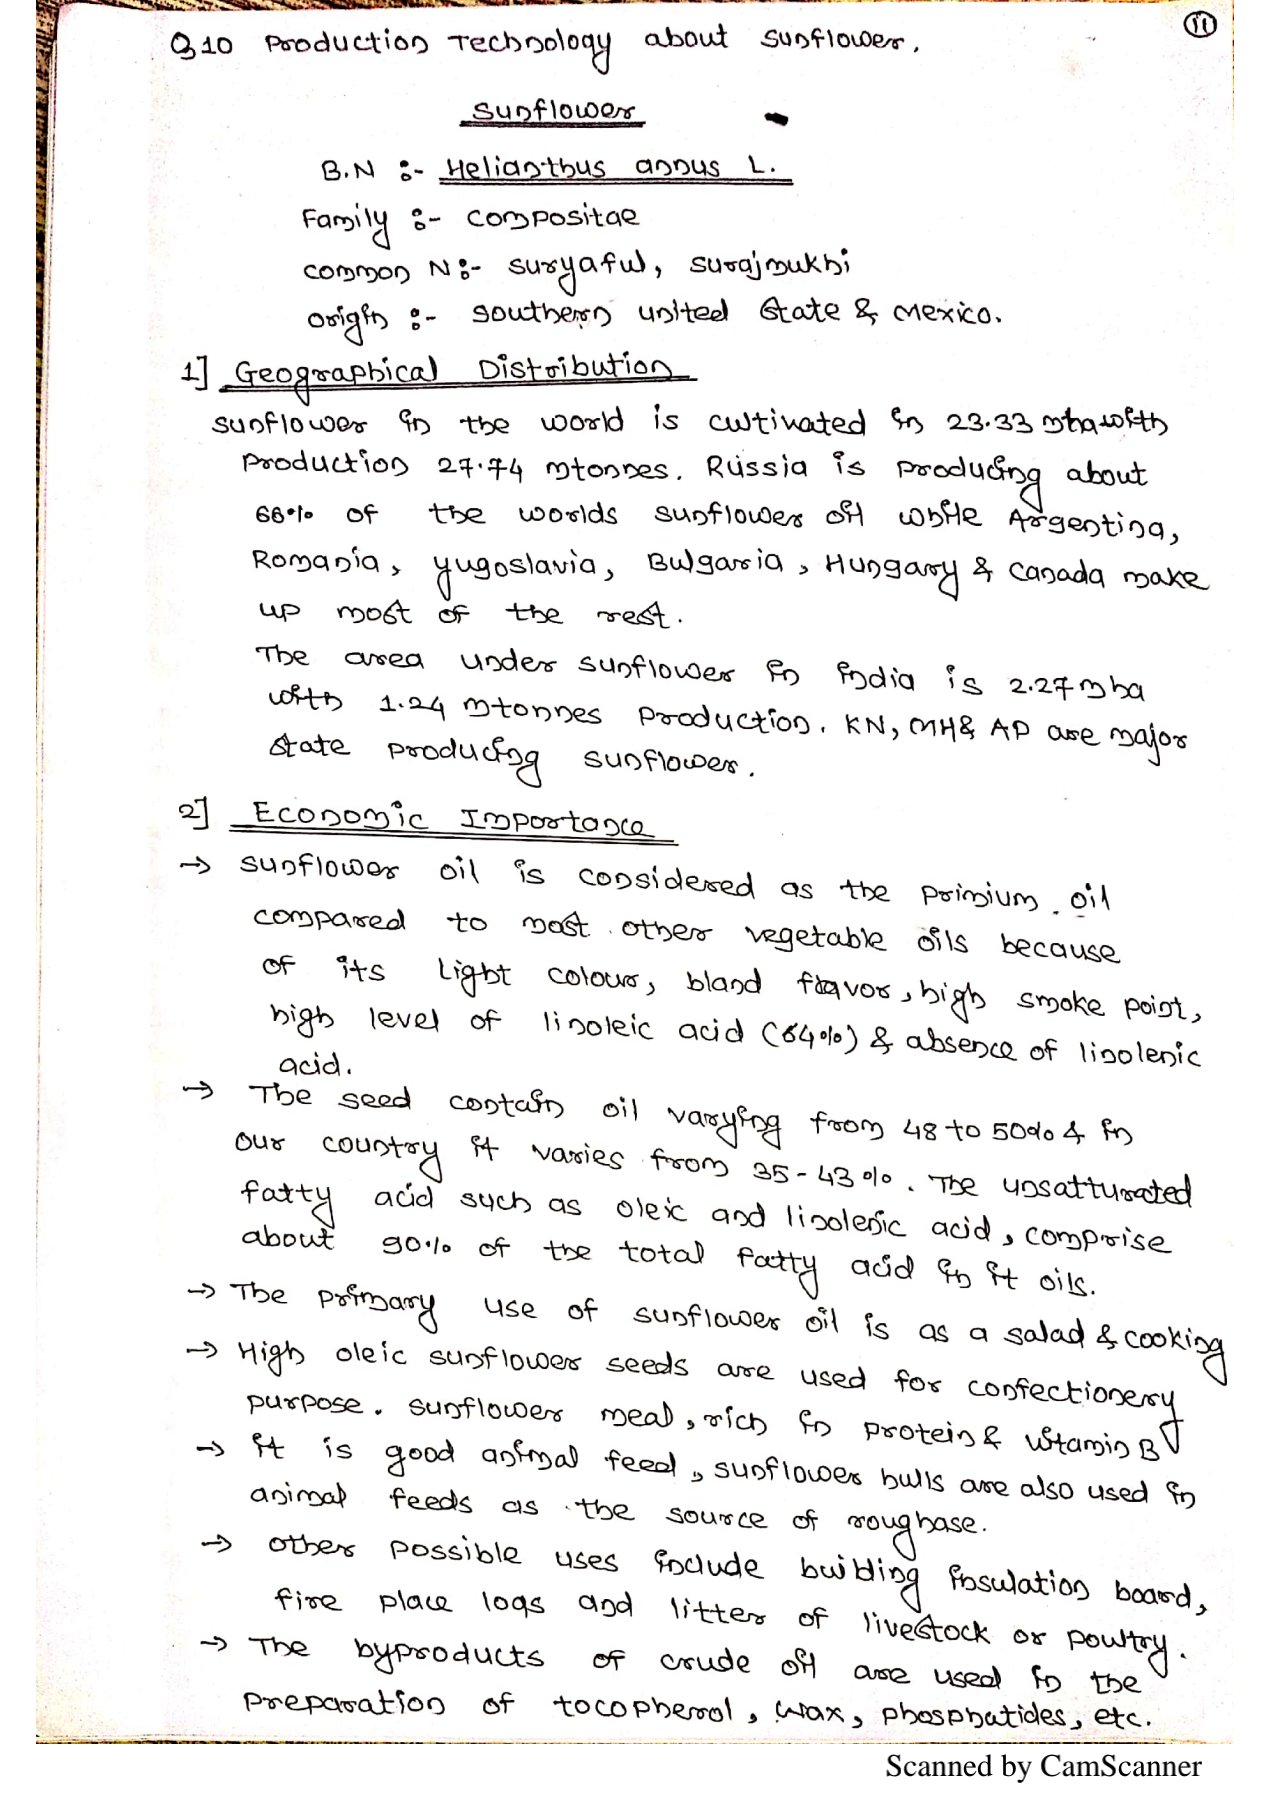 11
Q10 Production Technology about sunflower.
Sunflower
B.N :- Helianthus annus L.
Family :- compositae
common N :- suryaful, surajmukhi
origin :- southern united state & mexico.
1] Geographical Distribution
sunflower in the world is cultivated in 23.33 mha with
production 27.74 mtonnes. Russia is producing about
66% of the worlds sunflower oil while Argentina,
Romania, yugoslavia, Bulgaria, Hungary & canada make
up most of the rest.
The area under sunflower in india is 2.27 mha
with 1.24 mtonnes production. KN, MH & AP are major
state producing sunflower.
2] Economic Importance
→ sunflower oil is considered as the primium oil
compared to most other vegetable oils because
of its light colour, bland flavor, high smoke point,
high level of linoleic acid (64%) & absence of linolenic
acid.
→ The seed contain oil varying from 48 to 50% & in
our country it varies from 35-43%. The unsatturated
fatty acid such as oleic and linolenic acid, comprise
about 90% of the total fatty acid in it oils.
→ The primary use of sunflower oil is as a salad & cooking
→ High oleic sunflower seeds are used for confectionery
purpose. sunflower meal, rich in protein & vitamin B
→ it is good animal feed, sunflower hulls are also used in
animal feeds as the source of roughase.
→ other possible uses include building insulation board,
fire place logs and litter of livestock or poultry.
→ The byproducts of crude oil are used in the
preparation of tocopherol, wax, phosphatides, etc.
Scanned by CamScanner